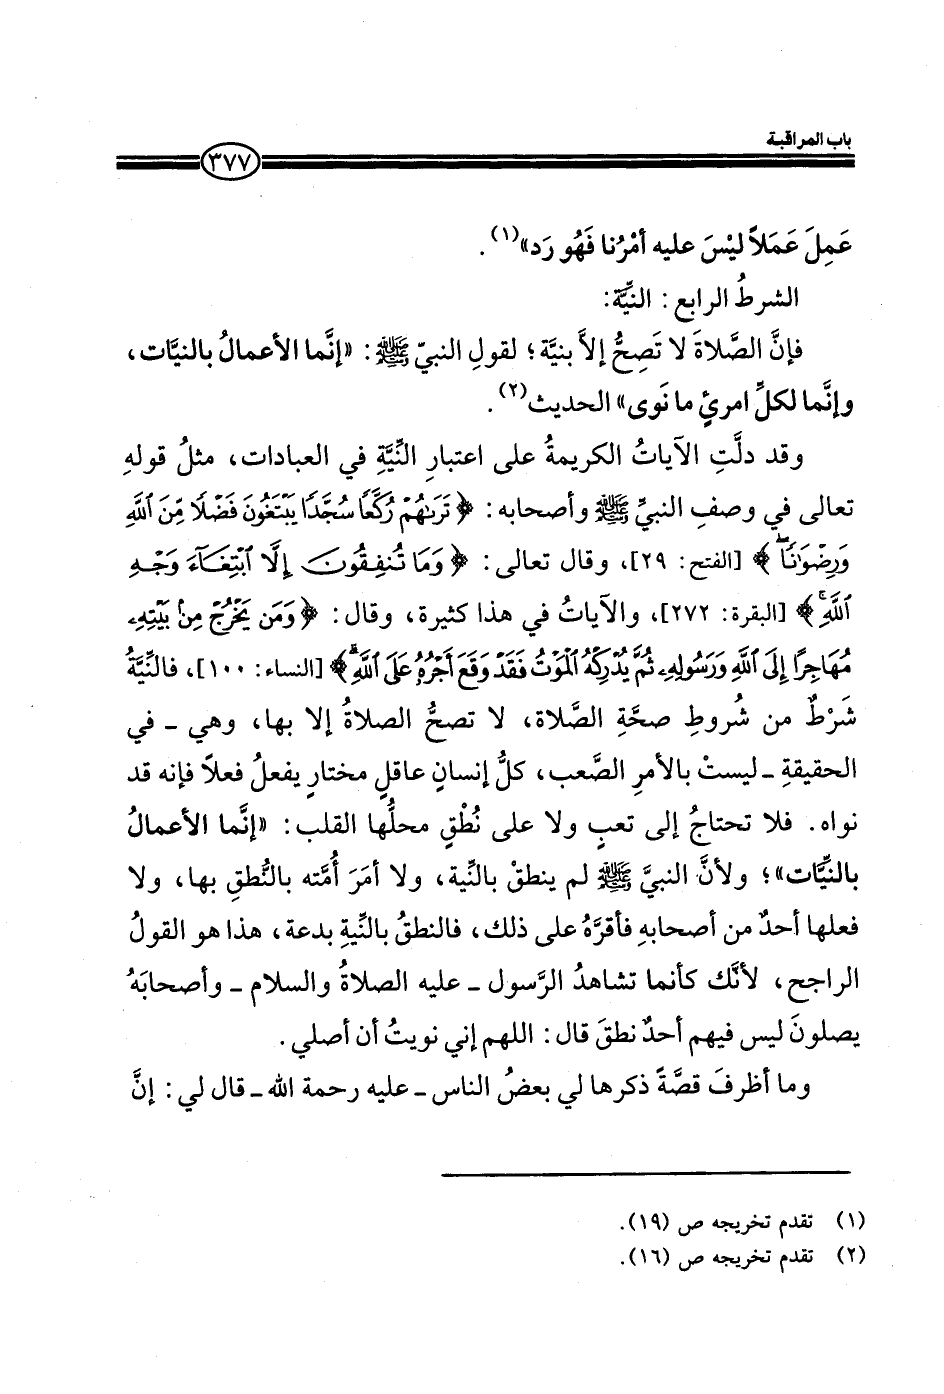 باب المراقبة
٣٧٧
عَمِلَ عَمَلاً ليْسَ عليه أمْرُنا فَهُو رَد»(١).
الشرطُ الرابع: النيَّة:
فإنَّ الصَّلاةَ لا تَصِحُّ إلاَّ بنيَّة؛ لقولِ النبيّ ﷺ: «إنَّما الأعمالُ بالنيَّات،
وإنَّما لكلِّ امرئٍ ما نَوى» الحديث(٢).
وقد دلَّتِ الآياتُ الكريمةُ على اعتبارِ النِّيَّةِ في العبادات، مثلُ قولهِ
تعالى في وصفِ النبيِّ ﷺ وأصحابه: ﴿تَرَىٰهُمْ رُكَّعًا سُجَّدًا يَبْتَغُونَ فَضْلًا مِّنَ ٱللَّهِ
وَرِضْوَٰنًا﴾ [الفتح: ٢٩]، وقال تعالى: ﴿وَمَا تُنفِقُونَ إِلَّا ٱبْتِغَآءَ وَجْهِ
ٱللَّهِ﴾ [البقرة: ٢٧٢]، والآياتُ في هذا كثيرة، وقال: ﴿وَمَن يَخْرُجْ مِنۢ بَيْتِهِۦ
مُهَاجِرًا إِلَى ٱللَّهِ وَرَسُولِهِۦ ثُمَّ يُدْرِكْهُ ٱلْمَوْتُ فَقَدْ وَقَعَ أَجْرُهُۥ عَلَى ٱللَّهِ﴾ [النساء: ١٠٠]، فالنِّيَّةُ
شَرْطٌ من شُروطِ صحَّةِ الصَّلاة، لا تصحُّ الصلاةُ إلا بها، وهي - في
الحقيقةِ - ليستْ بالأمرِ الصَّعب، كلُّ إنسانٍ عاقلٍ مختارٍ يفعلُ فعلاً فإنه قد
نواه. فلا تحتاجُ إلى تعبٍ ولا على نُطْقٍ محلُّها القلب: «إنَّما الأعمالُ
بالنيَّات»؛ ولأنَّ النبيَّ ﷺ لم ينطقْ بالنِّية، ولا أمَرَ أُمَّته بالنُّطقِ بها، ولا
فعلها أحدٌ من أصحابهِ فأقرَّهُ على ذلك، فالنطقُ بالنِّيةِ بدعة، هذا هو القولُ
الراجح، لأنَّك كأنما تشاهدُ الرَّسول - عليه الصلاةُ والسلام - وأصحابَهُ
يصلونَ ليس فيهم أحدٌ نطقَ قال: اللهم إني نويتُ أن أصلي.
وما أظرفَ قصَّةً ذكرها لي بعضُ الناس - عليه رحمة الله - قال لي: إنَّ
(١) تقدم تخريجه ص (١٩).
(٢) تقدم تخريجه ص (١٦).